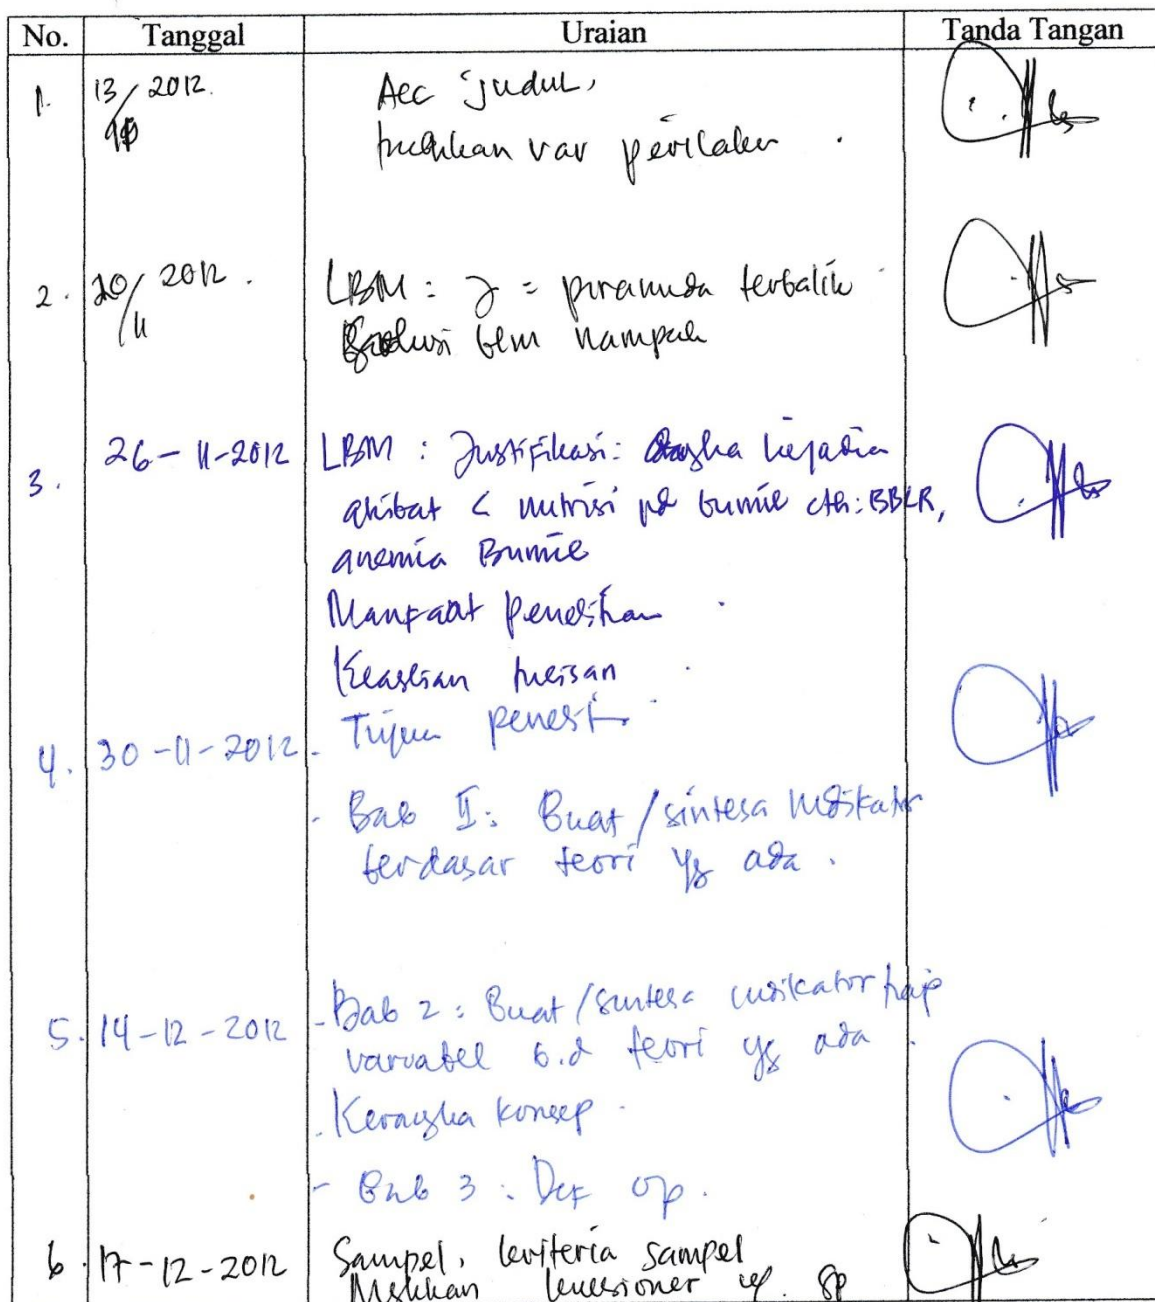 No. Tanggal Uraian Tanda Tangan
1. 13/ 2012. Acc judul,
var perilaku.
2. 20/11 2012. LBM: = piramida terbalik
blm nampak
3. 26-11-2012 LBM: Justifikasi: angka kejadian
akibat < nutrisi pd bumil cth: BBLR,
anemia Bumil
Manfaat penelitian
Keaslian
4. 30-11-2012 - Tujuan penelit
- Bab II: Buat/sintesa indikator
berdasar teori yg ada.
5. 14-12-2012 - Bab 2: Buat/sintesa indikator tiap
variabel b.d teori yg ada.
- Kerangka konsep.
- Bab 3: Def op.
6. 17-12-2012 Sampel, kriteria sampel
kuesioner